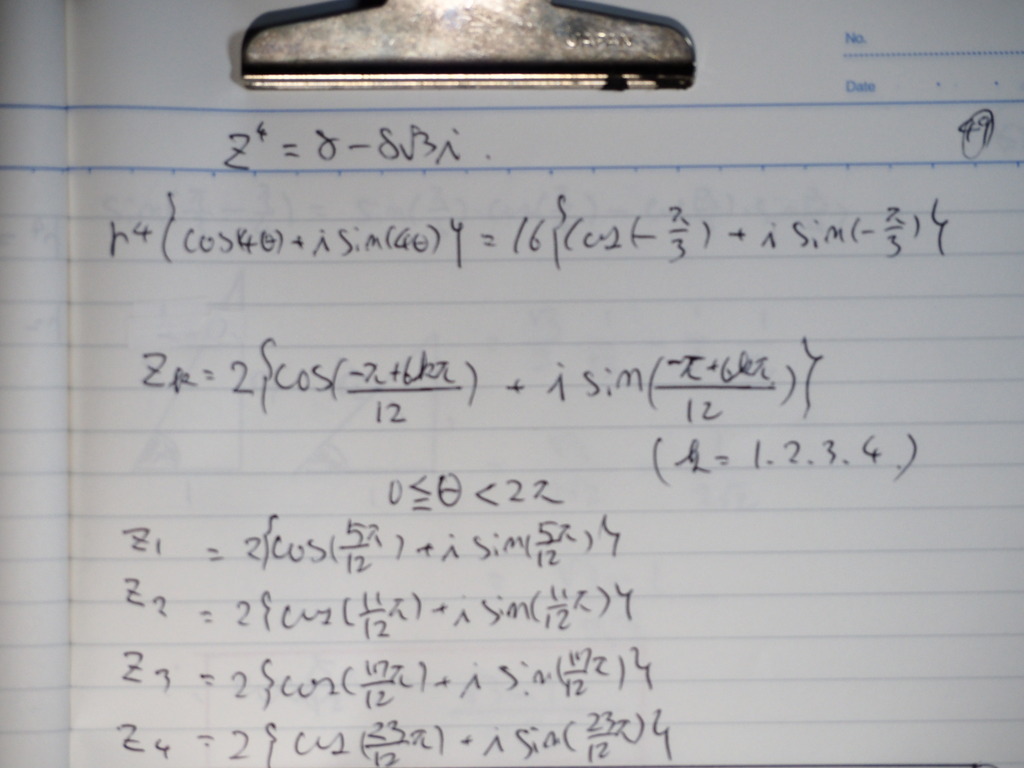 No.
Date
z⁴ = 8 - 8√3i.
49
r⁴{cos4θ + i sin(4θ)} = 16{(cos(-π/3) + i sin(-π/3)}
Zk = 2{cos((-π+6kπ)/12) + i sin((-π+6kπ)/12)}
(k = 1.2.3.4.)
0 ≦ θ < 2π
Z₁ = 2{cos(5π/12) + i sin(5π/12)}
Z₂ = 2{cos(11/12 π) + i sin(11/12 π)}
Z₃ = 2{cos(17π/12) + i sin(17π/12)}
Z₄ = 2{cos(23/12 π) + i sin(23/12 π)}